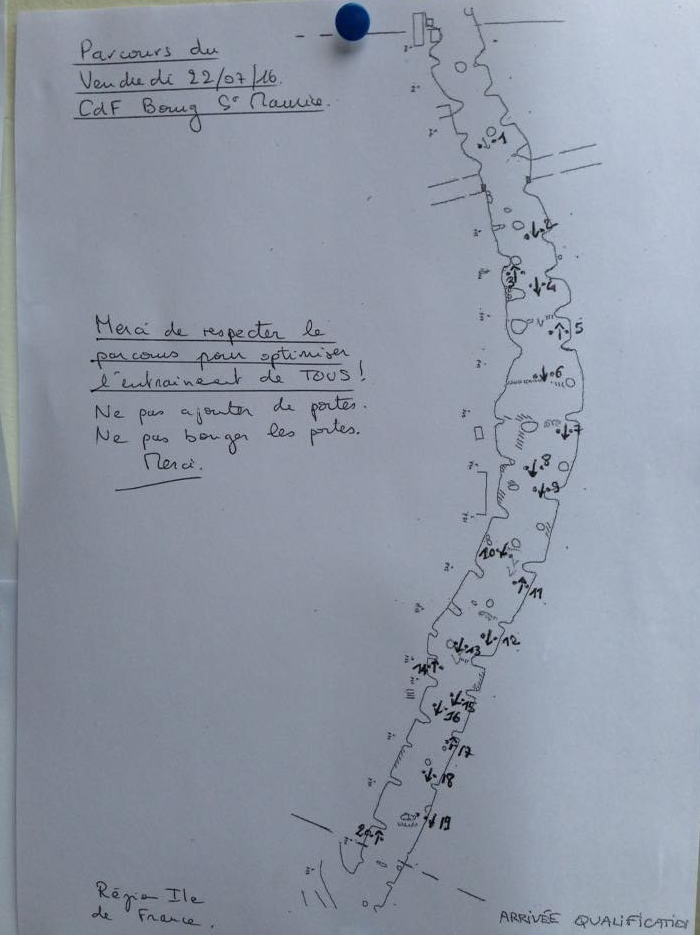 Parcours du
Vendredi 22/07/16.
CdF Bourg St Maurice.
1
2
3
4
5
6
7
8
9
10
11
12
13
14
15
16
17
18
19
20
Merci de respecter le
parcours pour optimiser
l'entrainement de TOUS !
Ne pas ajouter de portes.
Ne pas bouger les portes.
Merci.
Région Ile
de France.
ARRIVÉE QUALIFICATION